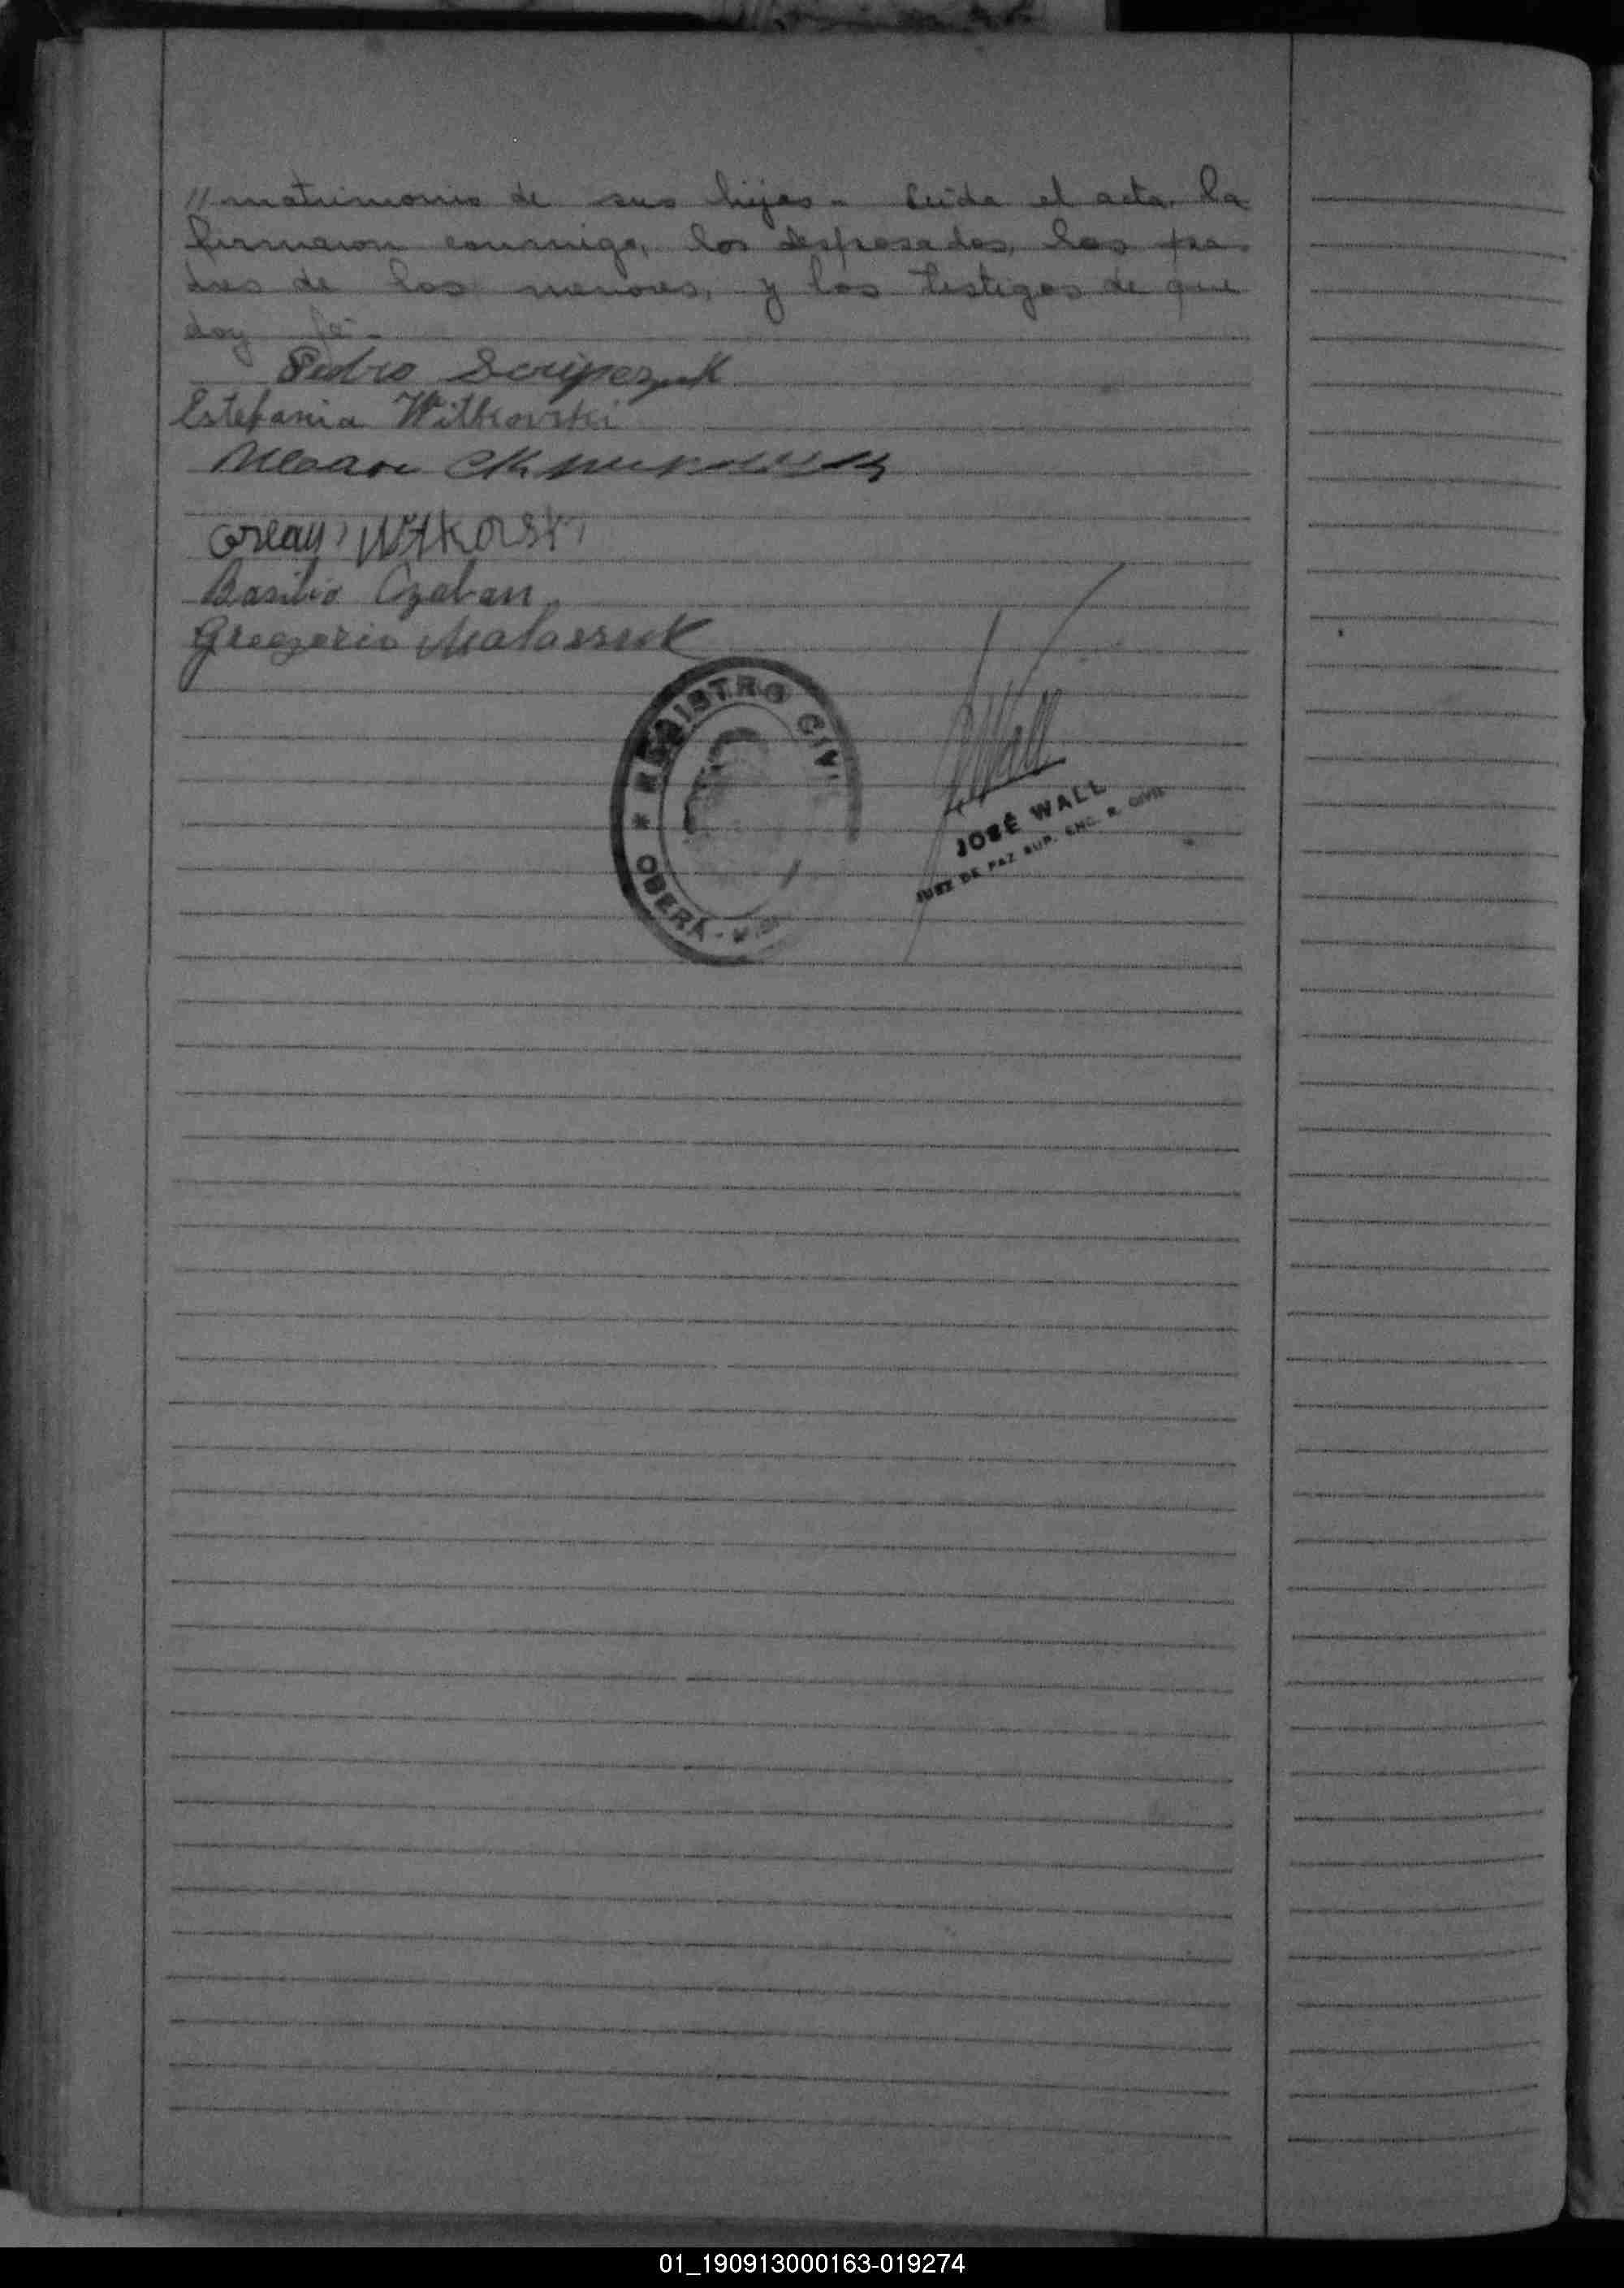 // matrimonio de sus hijos - Leída el acta, la
firmaron conmigo, los desposados, los pa-
dres de los menores, y los testigos de que
doy fé.-
Pedro Scripczuk
Estefania Witkovski
Witkorski
Basilio Czaban
Gregorio
REGISTRO CIVI
* OBERÁ -
Wall
JOSÉ WALL
JUEZ DE PAZ SUP. ENC. R. CIVIL
01_190913000163-019274